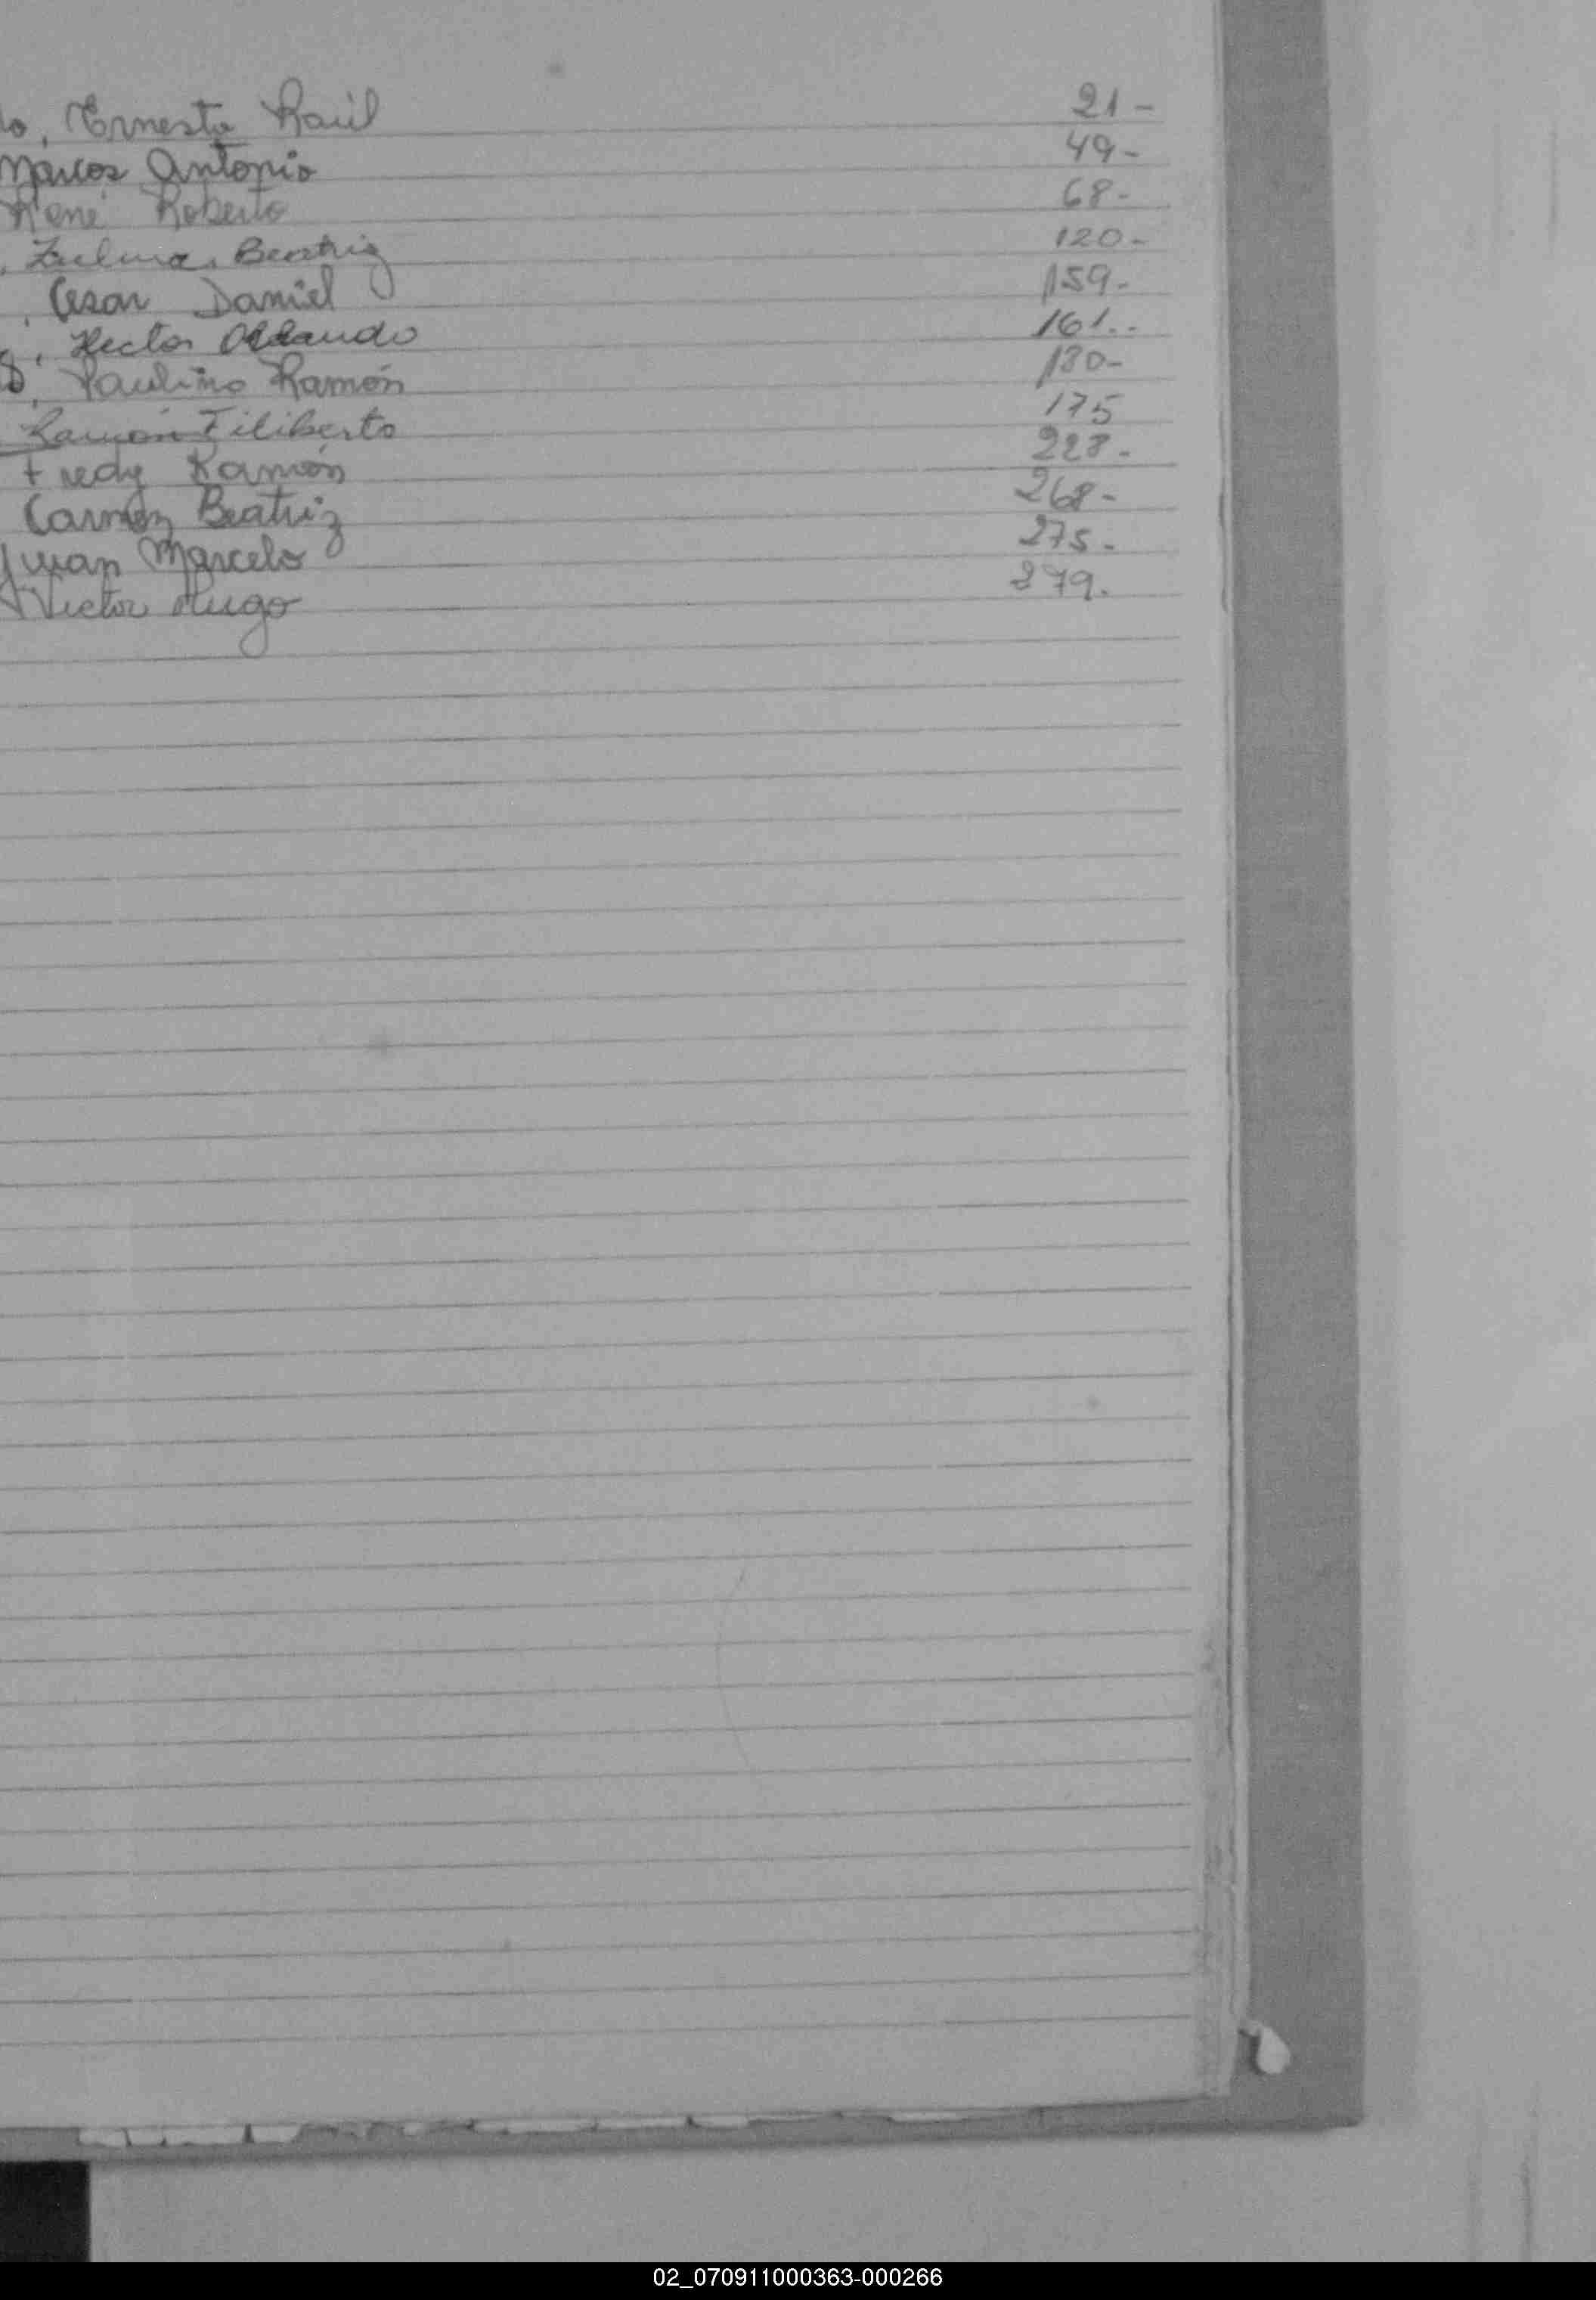 lo, Ernesto Raúl 21-
Marcos Antonio 49-
René Roberto 68-
, Zulma Beatriz 120-
, Cesar Daniel 159-
, Hector Orlando 161..
, Paulino Ramón 130-
Ramón Filiberto 175
Fredy Ramón 228-
Carmen Beatriz 268-
Juan Marcelo 275-
Victor Hugo 279.
02_070911000363-000266